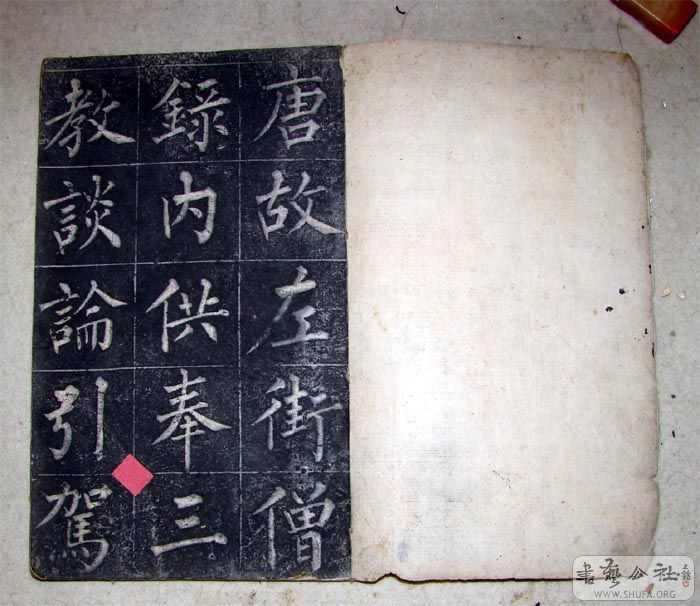 唐故左街僧
錄内供奉三
教談論引駕
書藝公社
WWW.SHUFA.ORG